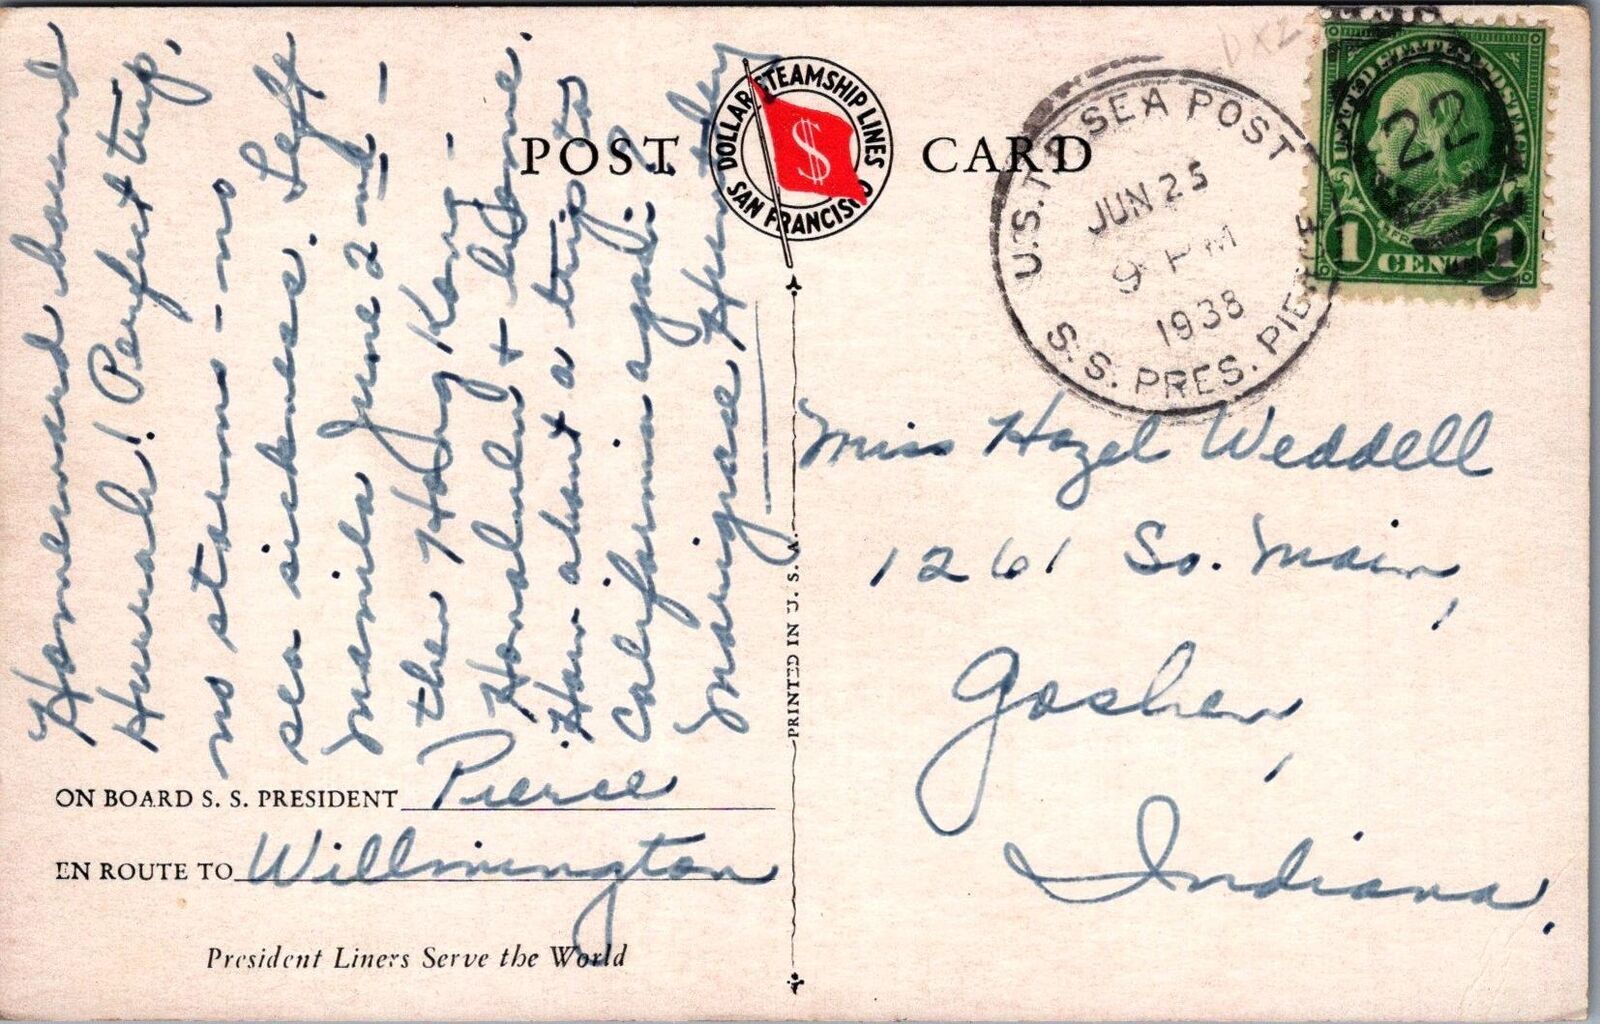 Homeward bound
Hurrah! Perfect trip,
no storms - no
sea sickness. Left
Manila June 2nd -
then Hong Kong -
Honolulu + home.
How about a trip to
California again?
POST CARD
DOLLAR STEAMSHIP LINES
SAN FRANCISCO
$
U.S.T.P. SEA POST
JUN 25
9 PM
1938
S.S. PRES. PIERCE
UNITED STATES POSTAGE
22
1 CENT 1
PRINTED IN U. S. A.
Miss Hazel Weddell
1261 So. Main,
Goshen,
Indiana.
ON BOARD S. S. PRESIDENT Pierce
EN ROUTE TO Willmington
President Liners Serve the World